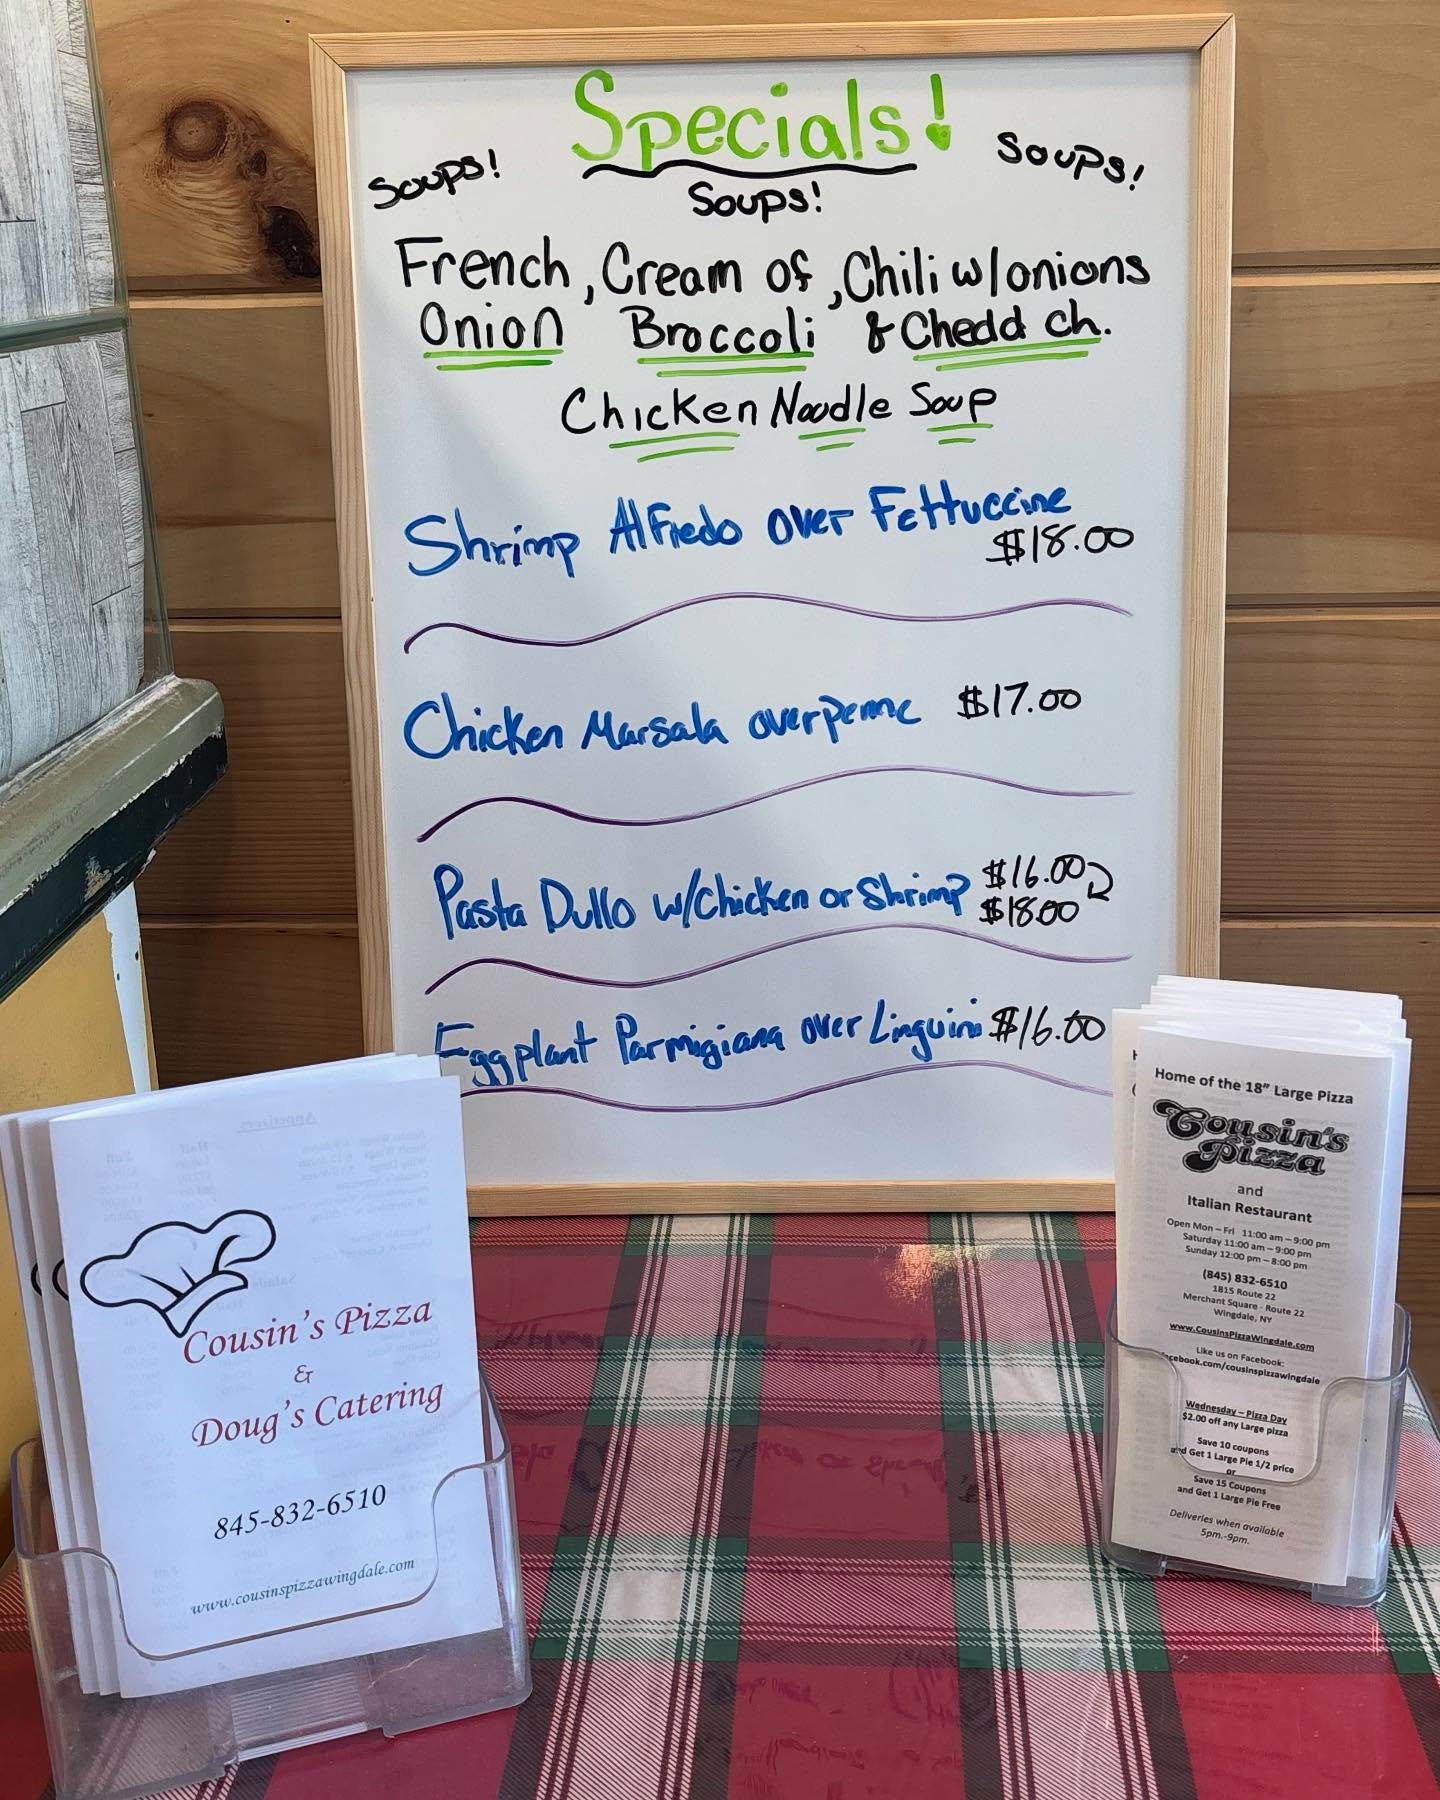 Specials!
Soups!
Soups!
Soups!
French, Cream of, Chili w/onions
Onion Broccoli & Chedd ch.
Chicken Noodle Soup
Shrimp Alfredo over Fettuccine
$18.00
Chicken Marsala over penne $17.00
Pasta Dullo w/Chicken or Shrimp $16.00
$18.00
Eggplant Parmigiana over Linguini $16.00
Cousin's Pizza
&
Doug's Catering
845-832-6510
www.cousinspizzawingdale.com
Home of the 18" Large Pizza
Cousin's
Pizza
and
Italian Restaurant
Open Mon – Fri 11:00 am – 9:00 pm
Saturday 11:00 am – 9:00 pm
Sunday 12:00 pm – 8:00 pm
(845) 832-6510
1815 Route 22
Merchant Square - Route 22
Wingdale, NY
www.CousinsPizzaWingdale.com
Like us on Facebook:
facebook.com/cousinspizzawingdale
Wednesday – Pizza Day
$2.00 off any Large pizza
Save 10 coupons
and Get 1 Large Pie 1/2 price
or
Save 15 Coupons
and Get 1 Large Pie Free
Deliveries when available
5pm.-9pm.